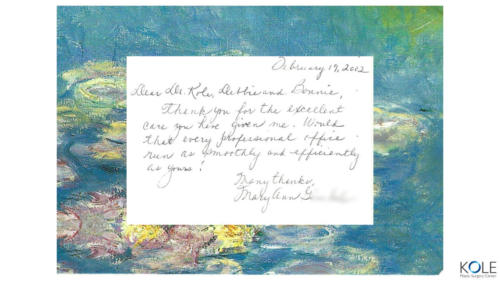 February 19, 2002
Dear Dr. Kole, Debbie and Bonnie,
Thank you for the excellent
care you have given me. Would
that every professional office
run as smoothly and efficiently
as yours!
Many thanks,
Mary Ann G
KOLE
Plastic Surgery Center